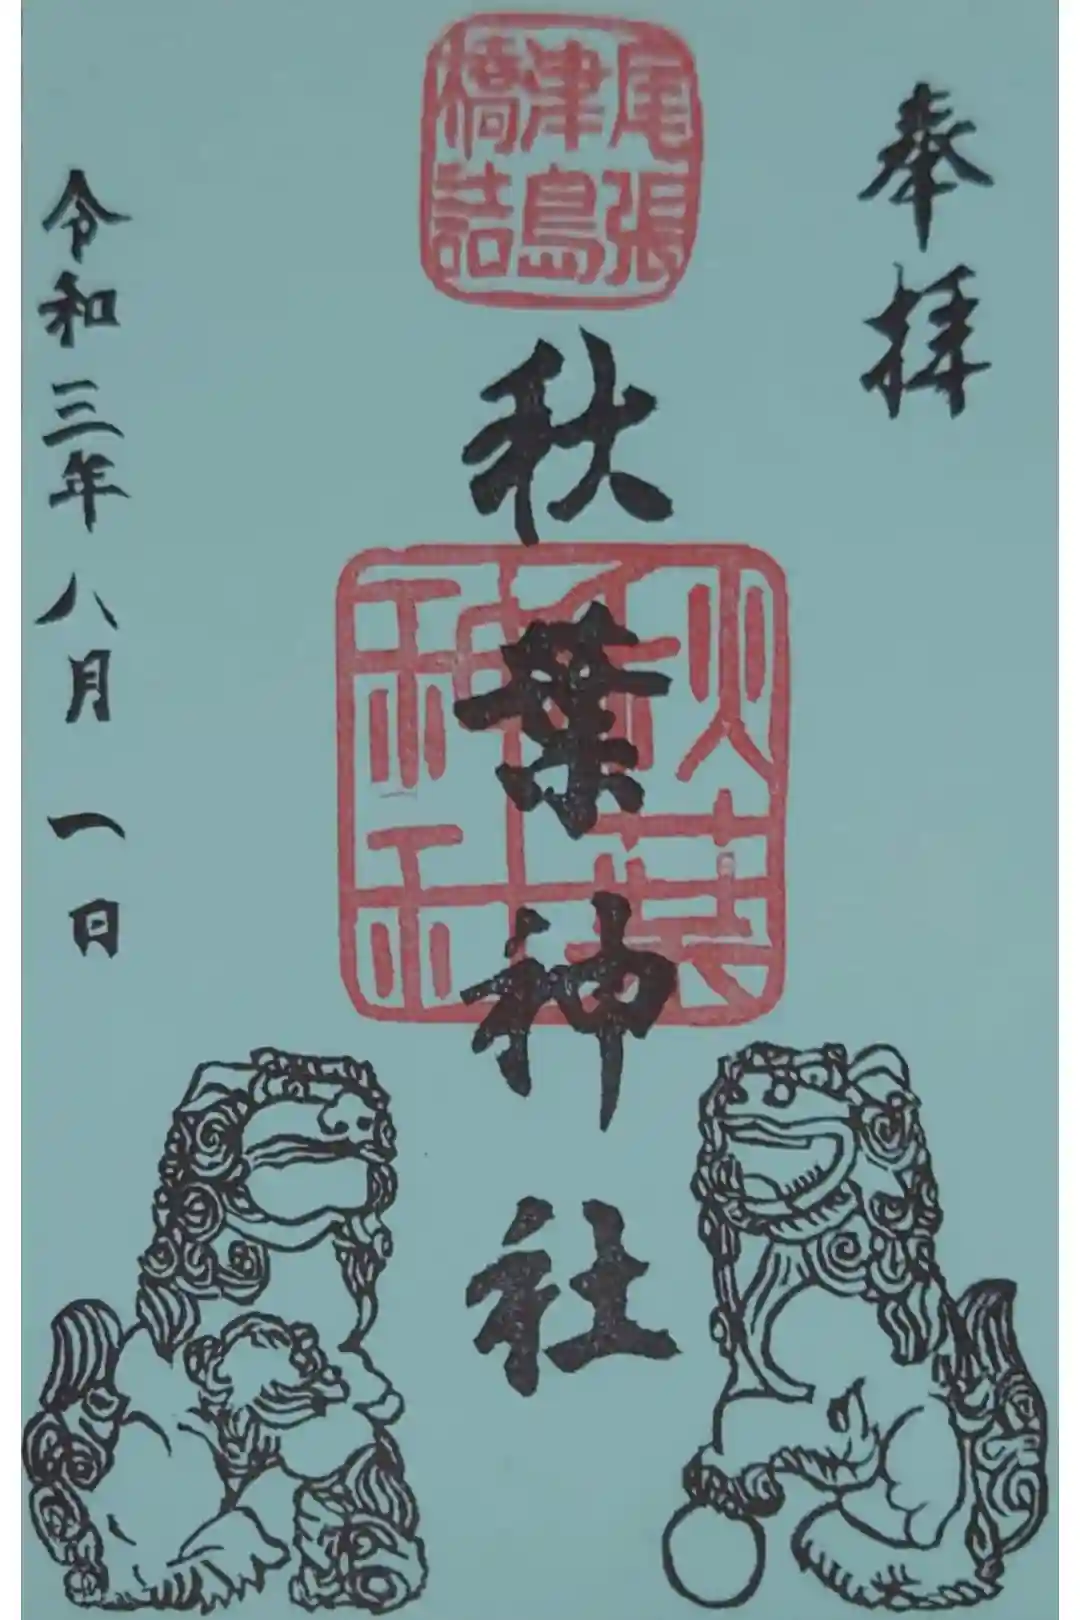 奉拝
尾張
津島
橋詰
秋葉神社
秋葉
神社
令和三年八月一日